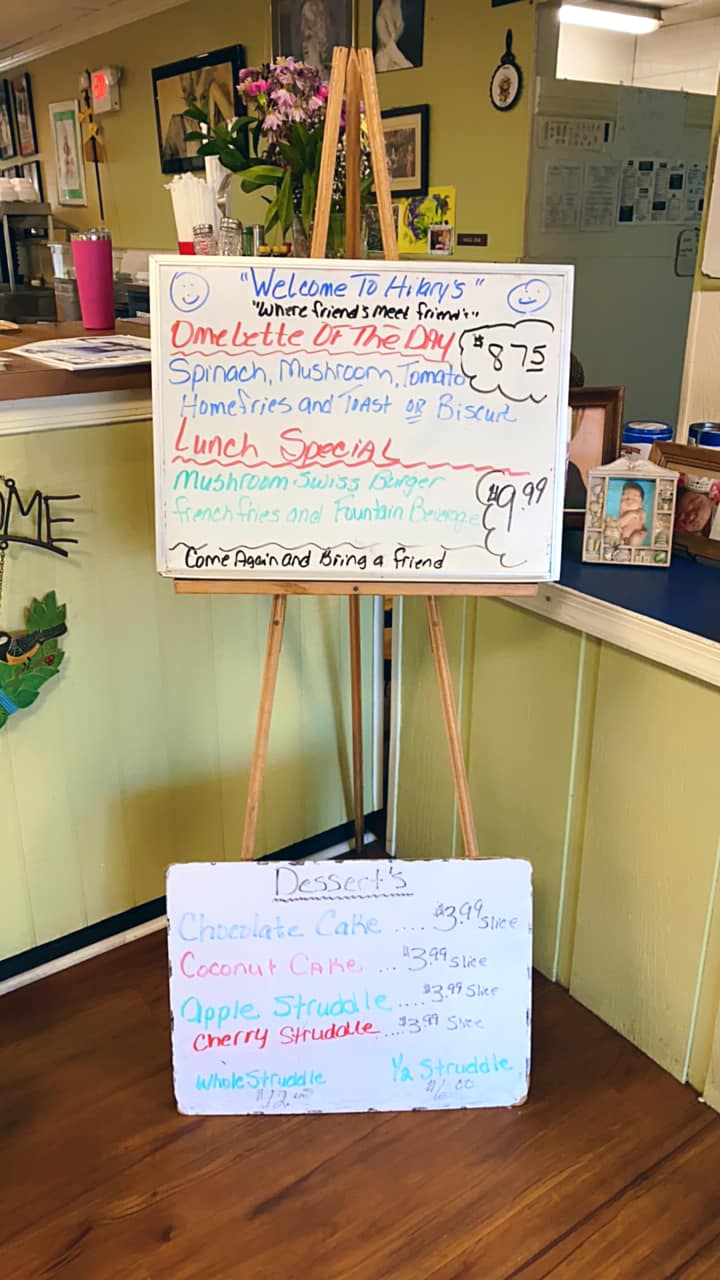 "Welcome To Hilary's"
"Where friend's meet friend's"
Omelette Of The Day
$8.75
Spinach, Mushroom, Tomato
Homefries and Toast OR Biscuit
Lunch Special
Mushroom Swiss Burger
$9.99
french fries and Fountain Beverage
Come Again and Bring a friend
OME
Dessert's
Chocolate Cake .... $3.99 slice
Coconut Cake ... $3.99 slice
Apple Struddle .... $3.99 Slice
Cherry Struddle ... $3.99 Slice
Whole Struddle 1/2 Struddle